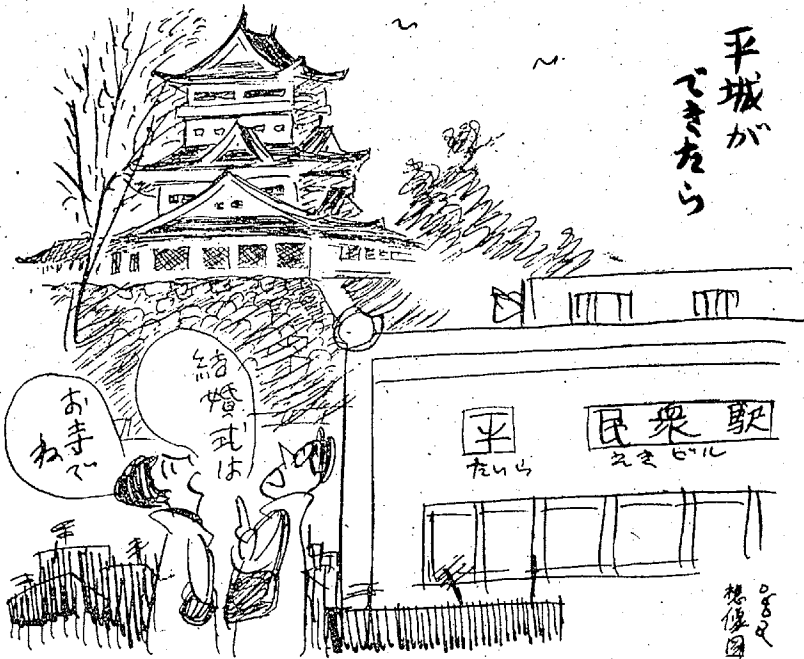 平城が
できたら
結婚式は
お寺で
ね
平
たいら
民衆駅
えきビル
想像図